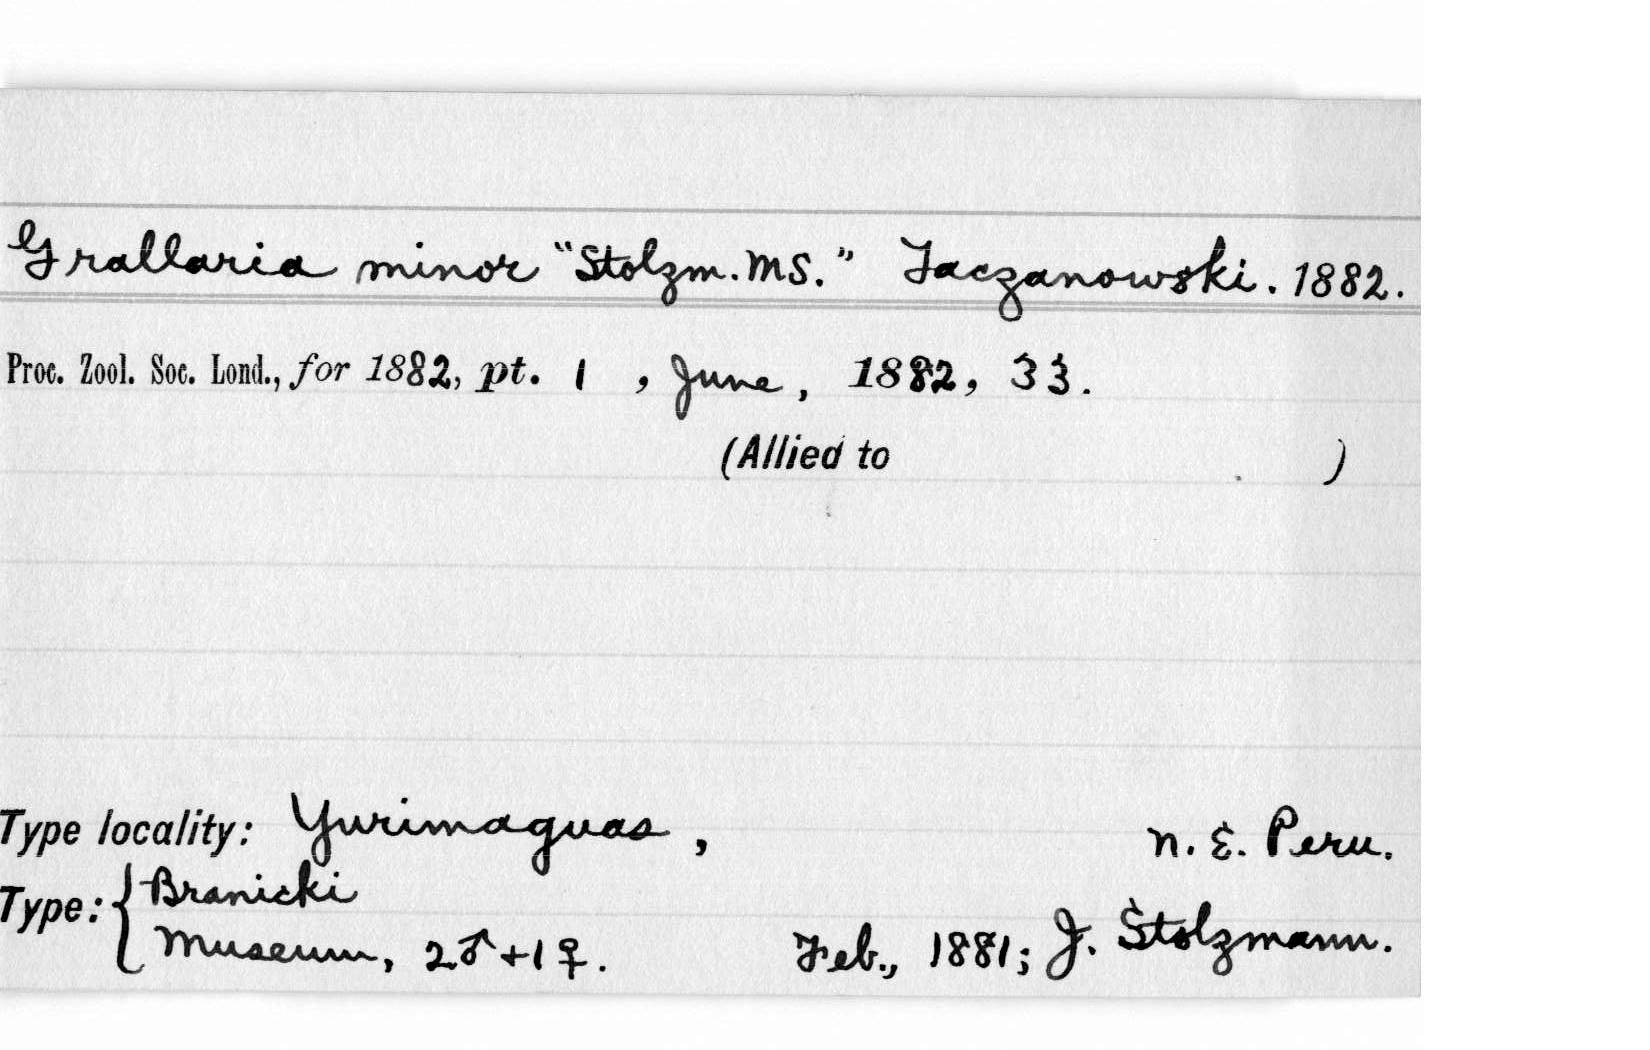 Grallaria minor "Stolzm. MS." Taczanowski. 1882.
Proc. Zool. Soc. Lond., for 1882, pt. 1, June, 1882, 33.
(Allied to )
Type locality: Yurimaguas, N. E. Peru.
Type: { Branicki
Museum, 2♂+1♀. Feb., 1881; J. Stolzmann.